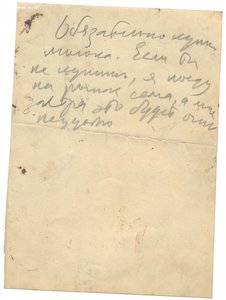 Обязательно купи
молока. Если ты
не купишь, я поеду
на рынок сама, а мне
завтра это будет очень
неудобно